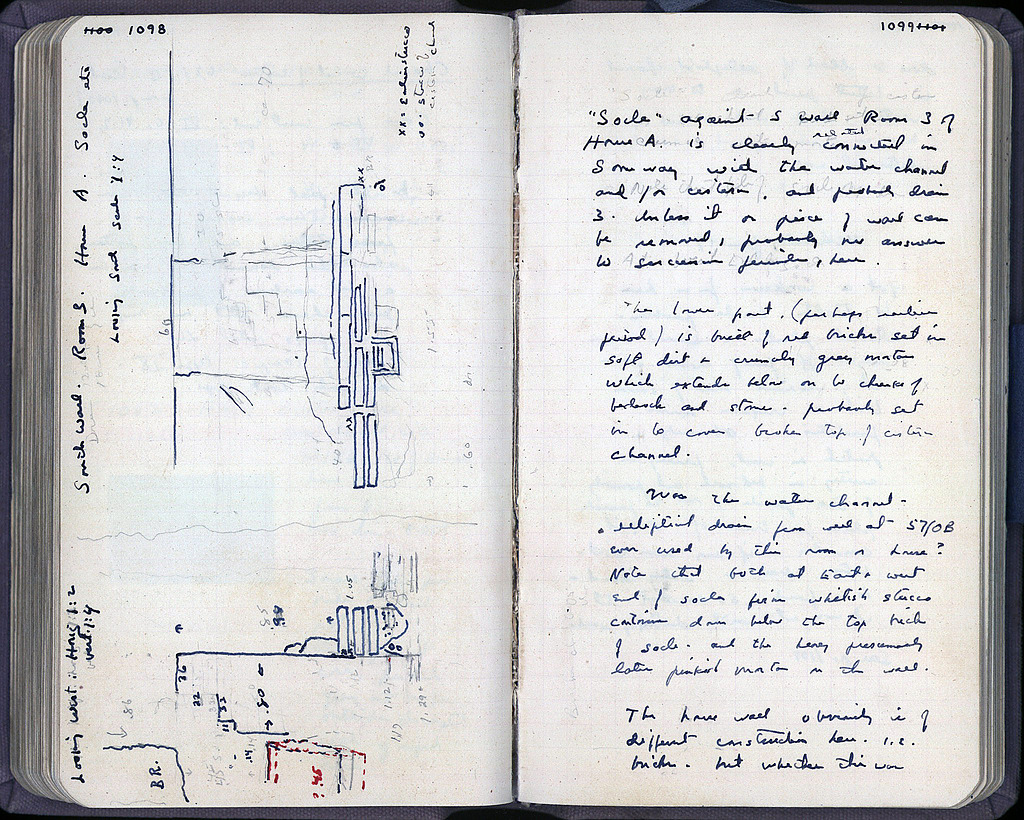 1100 1098
South wall. Room 3. House A. Socle etc
Looking South Scale 1:4
xx = Exterior stucco
oo = stucco of
cistern channel
60
xx
xx
.40
1.55
.60
Looking west: Horiz 1:2
vert 1:4
1.05
.85
.36
22
33
11
.80
.14
1.12
1.29
.86
BR.
.45
1099 1101
"Socle" against S wall Room 3 of
House A. is closely related connected in
some way with the water channel
and/or cistern, and probably drain
3. Unless it or piece of wall can
be removed, probably no answer
to succession periods, here.
The lower part, (perhaps earlier
period) is built of red bricks set in
soft dirt & crumbly grey mortar
which extends below on to chunks of
bedrock and stone - probably set
in to cover broken top of cistern
channel.
Was the water channel -
elliptical drain from well at 57/OB
ever used by this room or house?
Note that both at East & west
end of socle firm whitish stucco
continues down below the top brick
of socle - and the heavy presumably
later pinkish mortar on the wall.
The house wall obviously is of
different construction here. i.e.
bricks. but whether this was